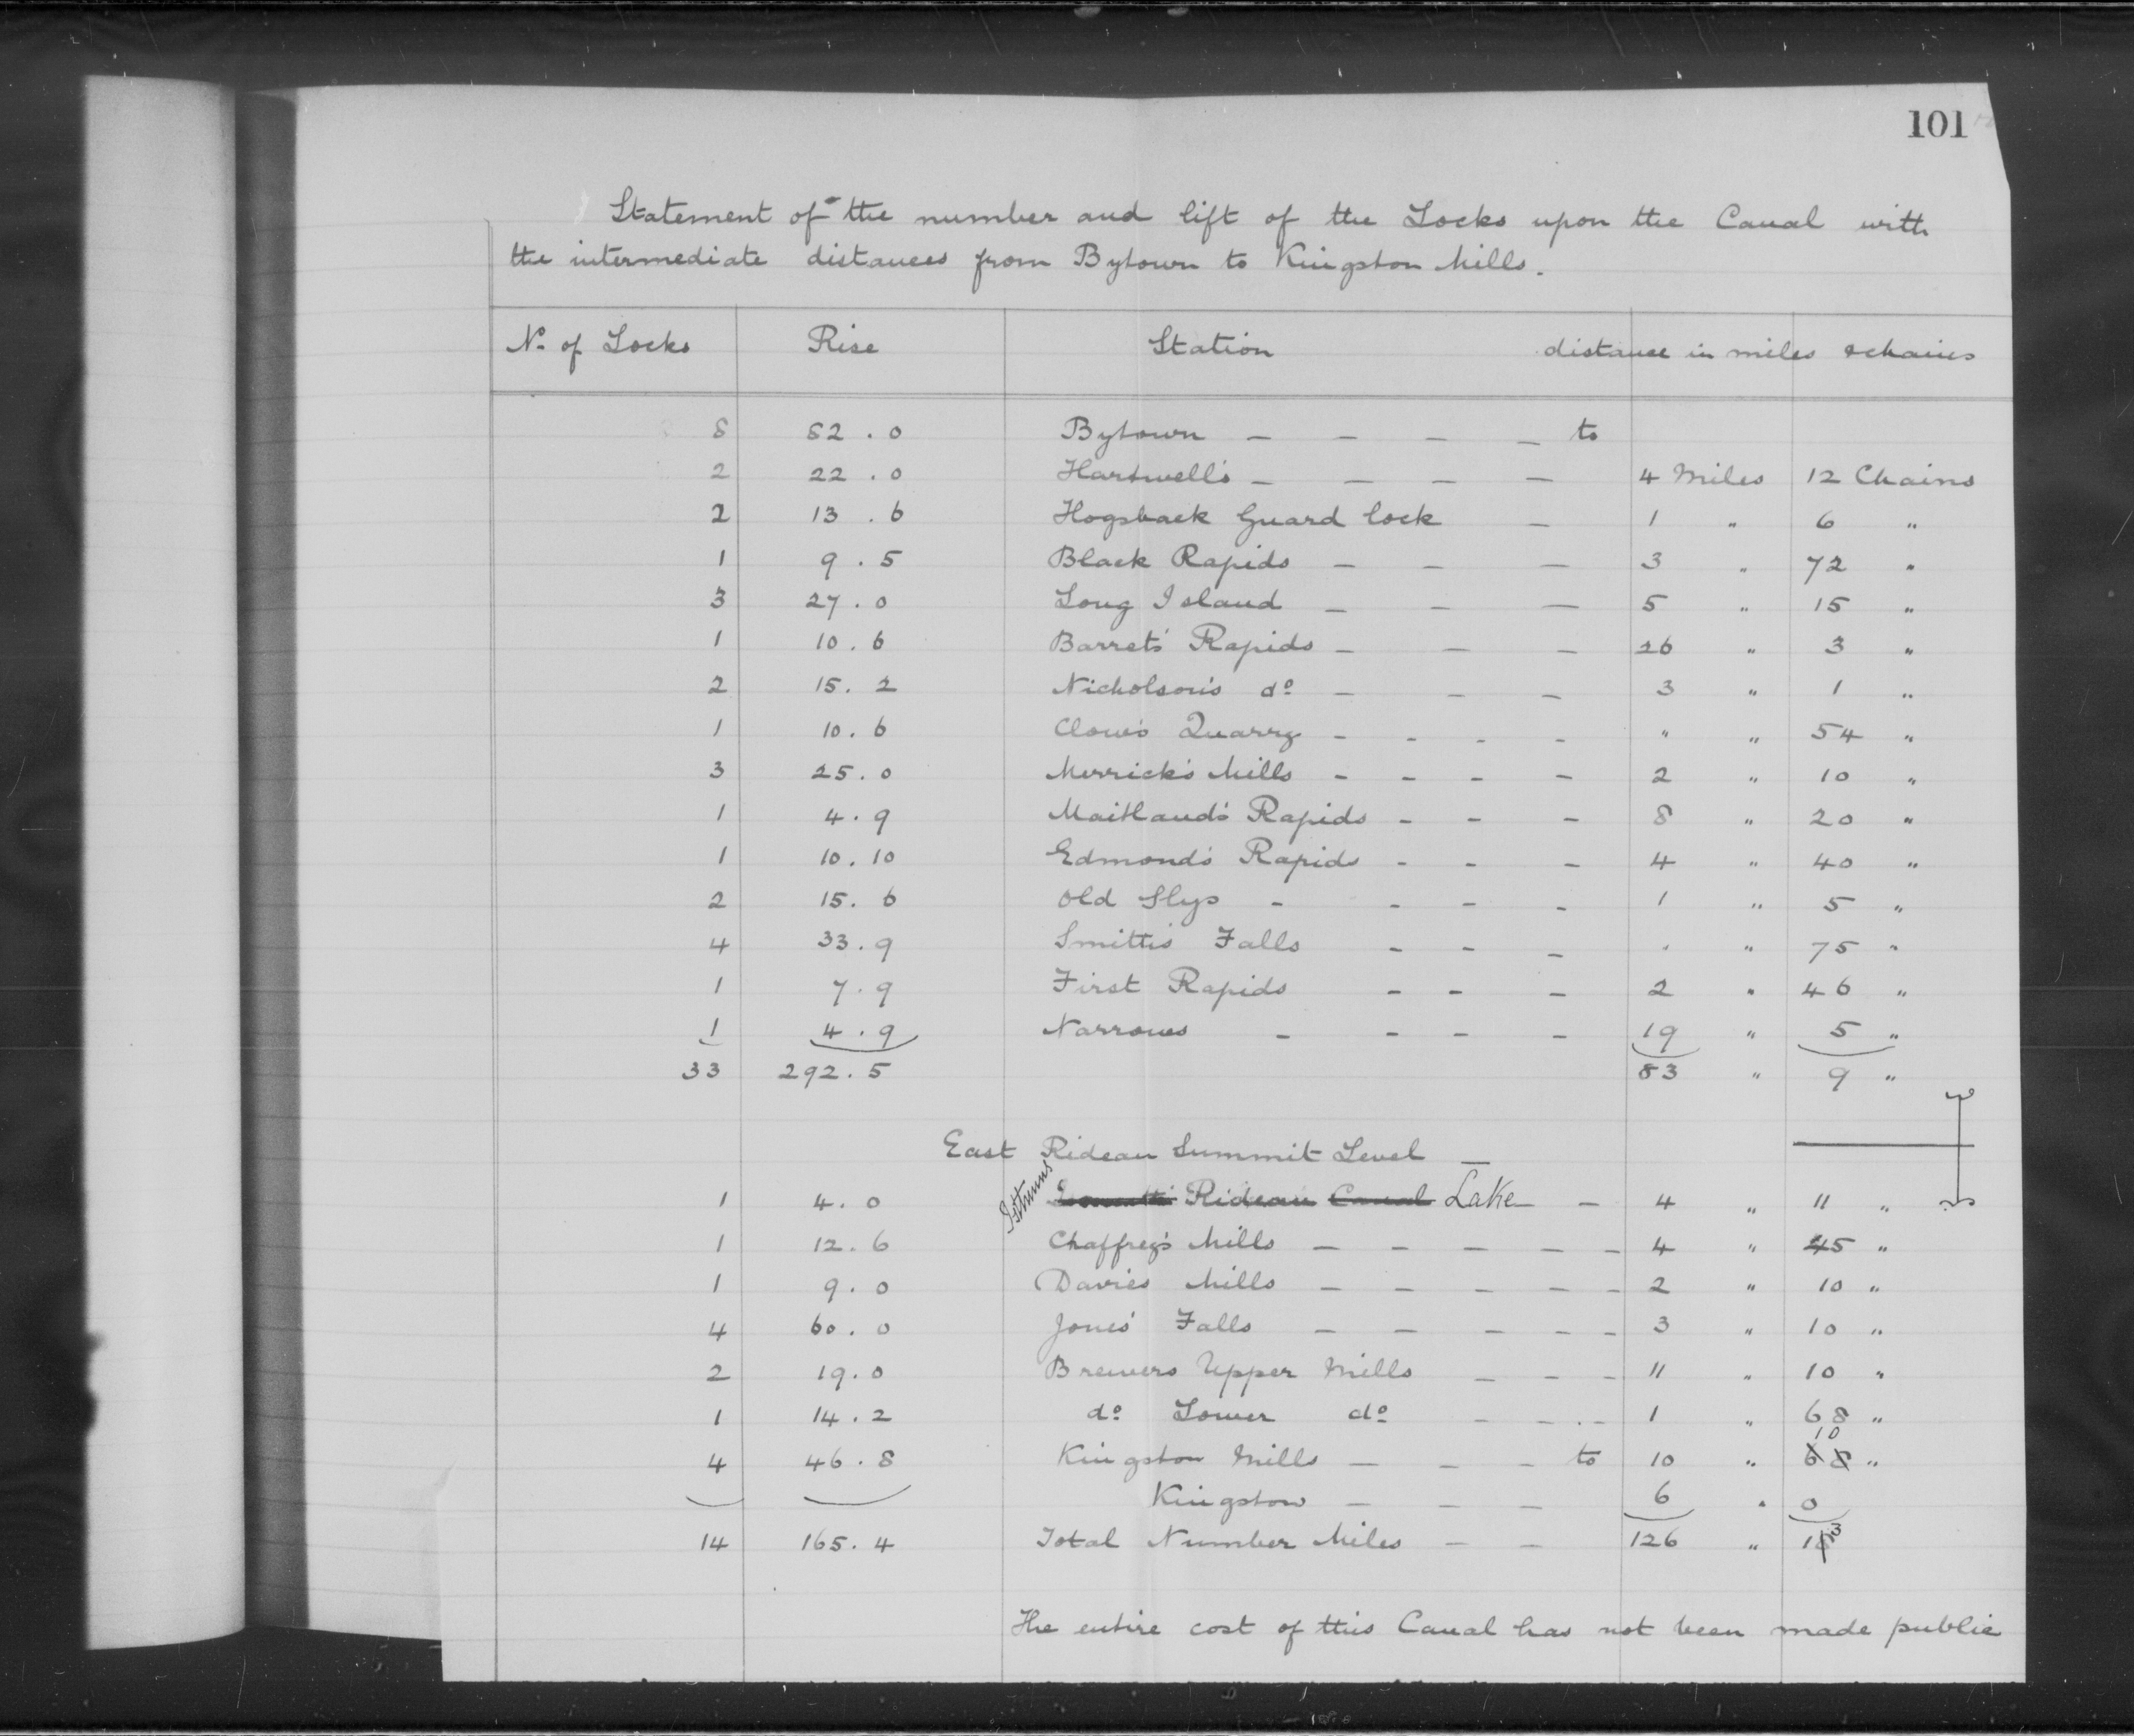 101
Statement of the number and lift of the Locks upon the Canal with
the intermediate distances from Bytown to Kingston Mills.
No. of Locks Rise Station distance in miles & chains
8 82.0 Bytown — — — — to
2 22.0 Hartwell's — — — — 4 Miles 12 Chains
2 13.6 Hogsback Guard lock — 1 " 6 "
1 9.5 Black Rapids — — — 3 " 72 "
3 27.0 Long Island — — — 5 " 15 "
1 10.6 Barret's Rapids — — — 26 " 3 "
2 15.2 Nicholson's do — — — 3 " 1 "
1 10.6 Clow's Quarry - - - - " " 54 "
3 25.0 Merrick's Mills - - - - 2 " 10 "
1 4.9 Maitland's Rapids - - - 8 " 20 "
1 10.10 Edmond's Rapids - - - 4 " 40 "
2 15.6 Old Slys - - - - 1 " 5 "
4 33.9 Smith's Falls - - - " " 75 "
1 7.9 First Rapids - - - 2 " 46 "
1 4.9 Narrows - - - - 19 " 5 "
33 292.5 83 " 9 "
East Rideau Summit Level —
1 4.0 Isthmus Rideau Canal Lake — 4 " 11 "
1 12.6 Chaffrey's Mills — — — — — 4 " 45 "
1 9.0 Davies Mills — — — — — 2 " 10 "
4 60.0 Jones' Falls — — — — — 3 " 10 "
2 19.0 Brewers Upper Mills — — — 11 " 10 "
1 14.2 do Lower do - - - - 1 " 68 "
10
4 46.8 Kingston Mills — — — to 10 " 68 "
Kingston — — — 6 " 0
14 165.4 Total Number Miles — — 126 " 18 3
The entire cost of this Canal has not been made public